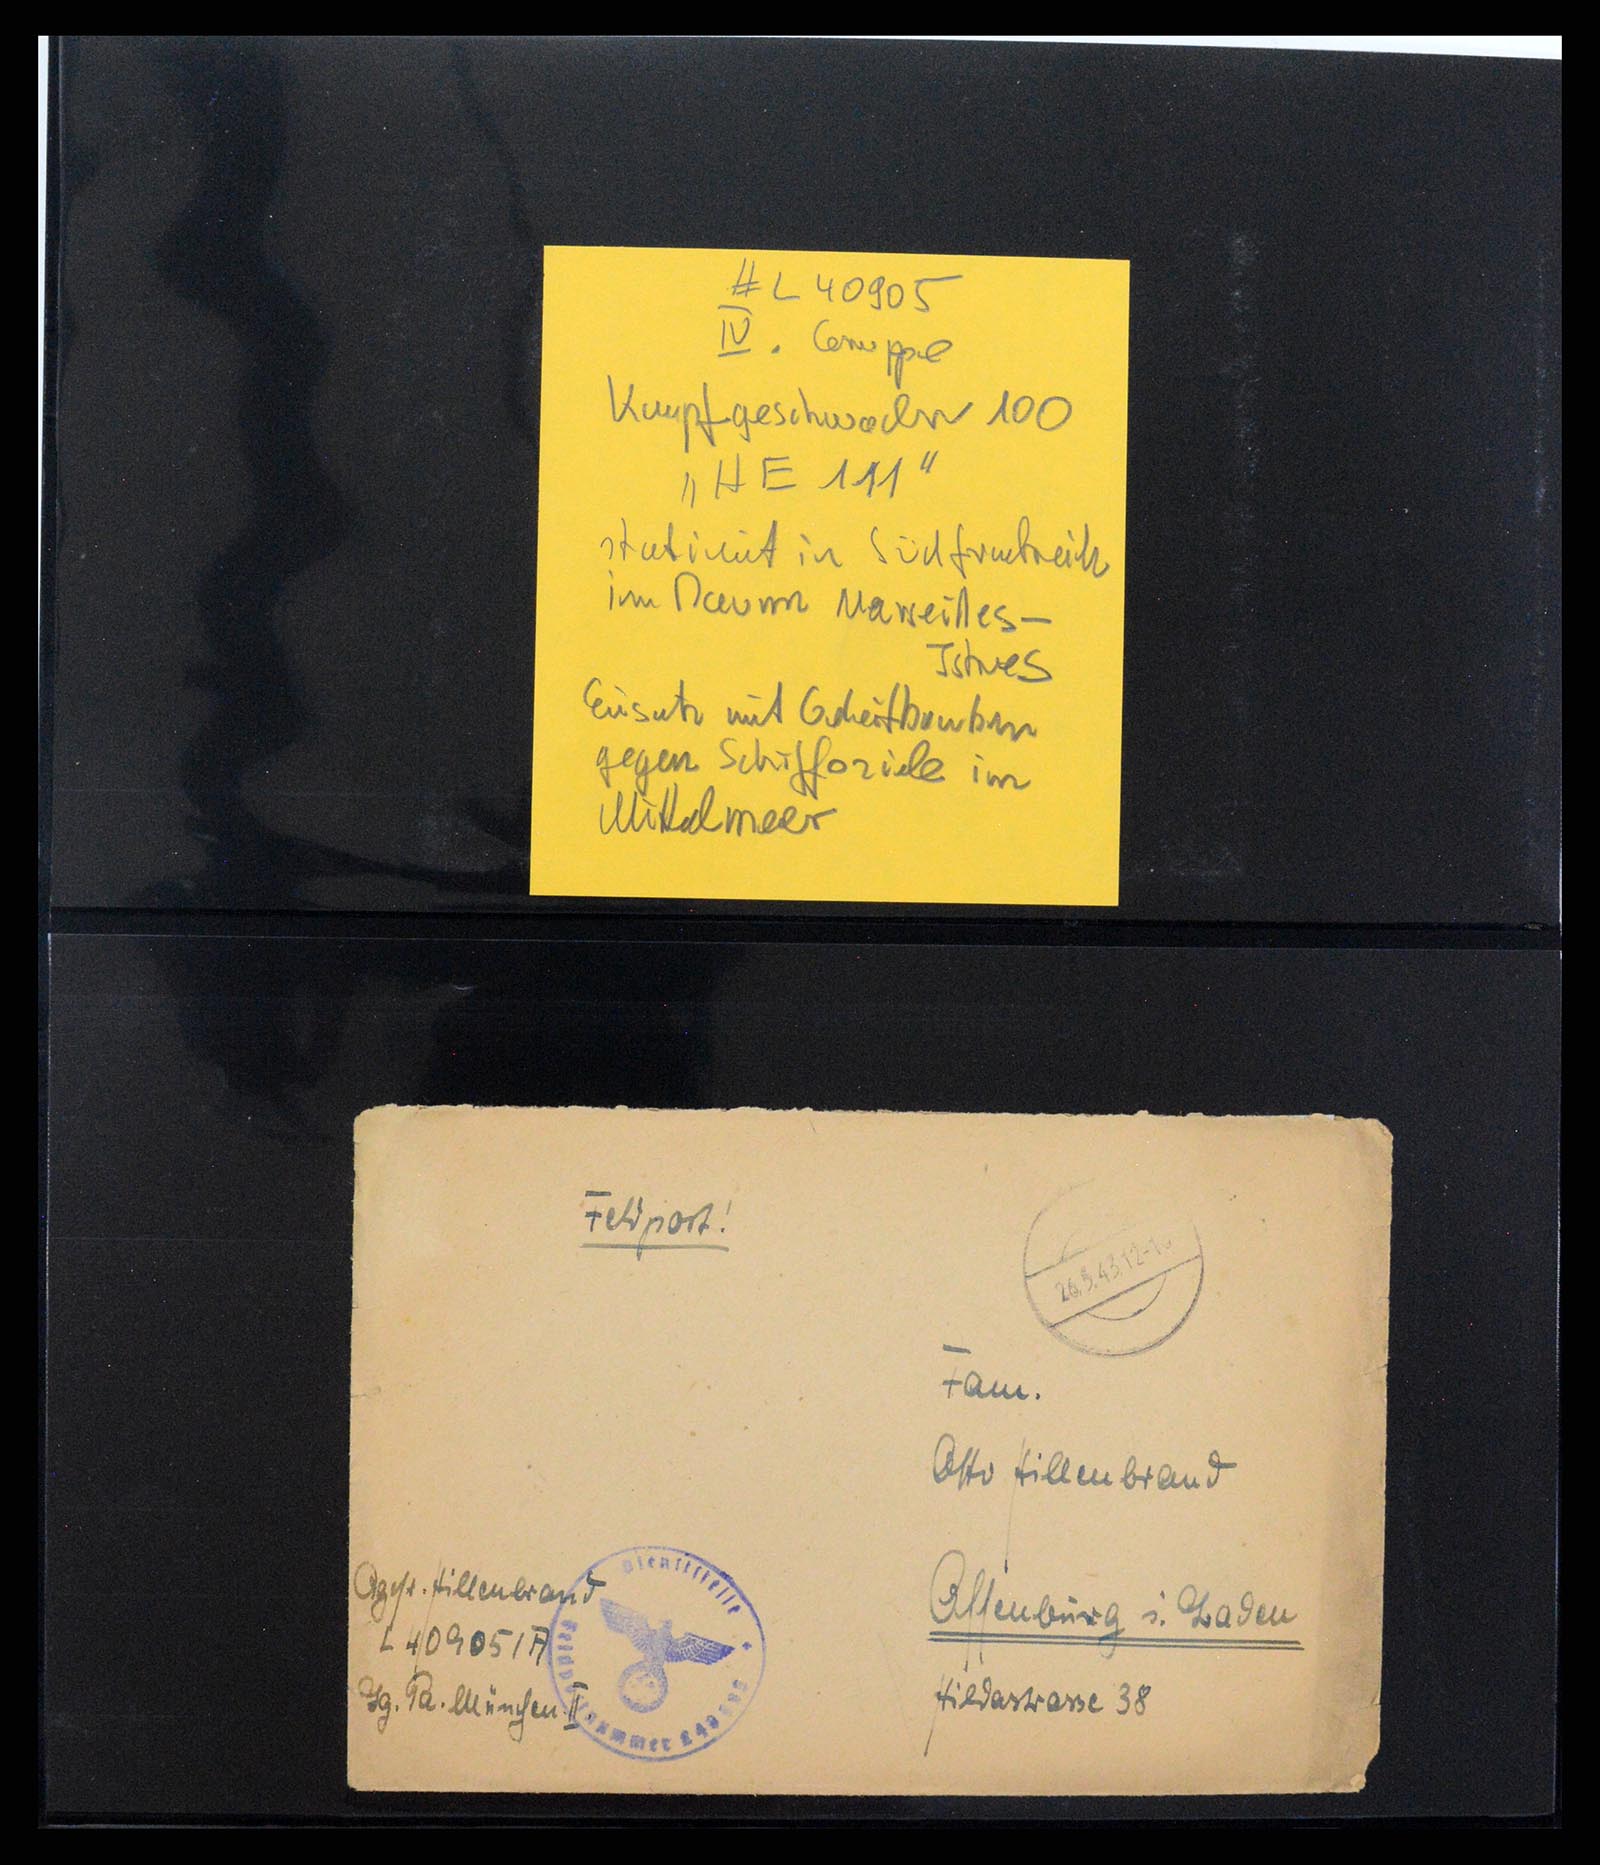 # L 40905
IV. Gruppe
Kampfgeschwader 100
„HE 111“
stationiert in Südfrankreich
im Raum Marseilles-
Istres
Einsatz mit Gleitbomben
gegen Schiffsziele im
Mittelmeer
Feldpost!
26.5.43.12-
Fam.
Otto Hillenbrand
Offenburg i. Baden
Hildastrasse 38
Ogefr. Hillenbrand
L 40905/A
Lg. Pa. München II.
Dienststelle
Feldpostnummer L 40905